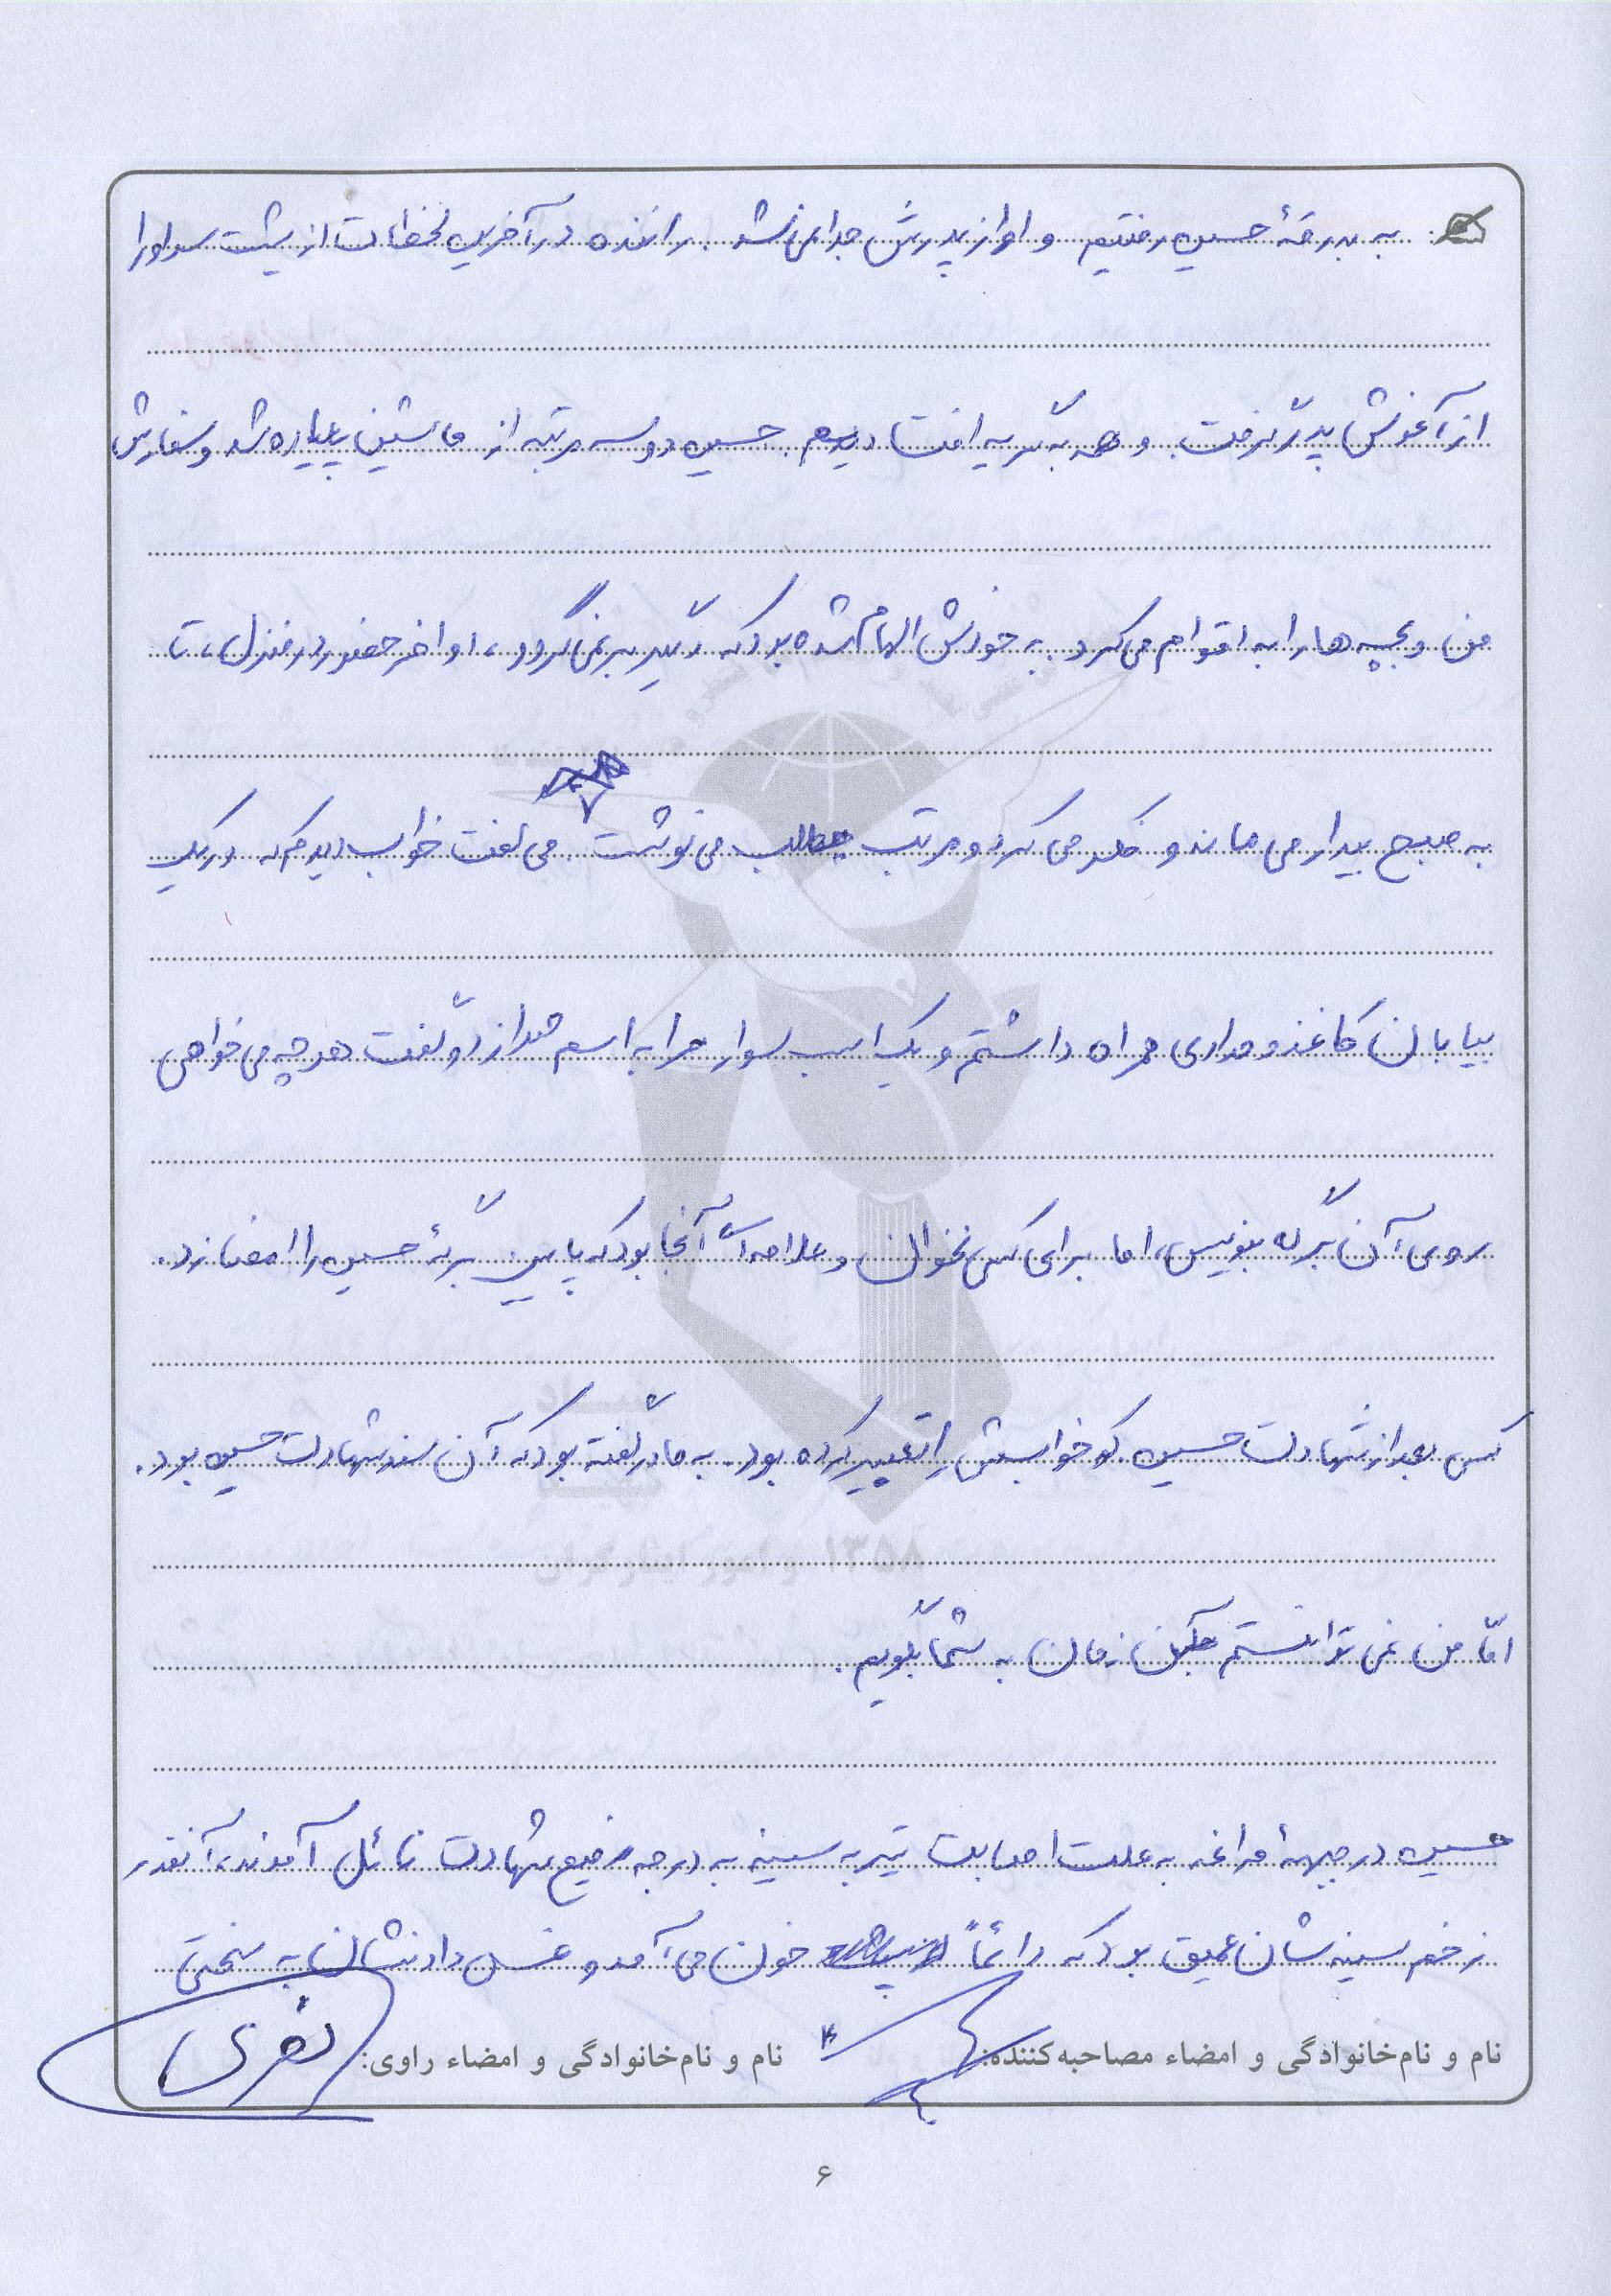 به بدرقهٔ حسین رفتیم و او از پدرش جدا نمی‌شد. راننده در آخرین لحظات از پشت سر او را
از آغوش پدر گرفت. و همه به گریه افتادیم. حسین دو سه مرتبه از ماشین پیاده شد و سفارش
من و بچه‌ها را به اقوام می‌کرد. به خودش الهام شده بود که دیگر برنمی‌گردد، اواخر حضور در منزل، تا
به صبح بیدار می‌ماند و فکر می‌کرد و مرتب مطلب می‌نوشت. می‌گفت خواب دیدم که در یک
بیابان کاغذ و مدادی همراه داشتم و یک اسب سوار مرا به اسم صدا زد و گفت هر چه می‌خواهی
روی آن برگه بنویس، اما برای کسی نخوان و علامه آنجا بود که پایین برگهٔ حسین را امضا زد.
کسی بعد از شهادت حسین که خوابش را تعبیر کرده بود. به مادر گفته بود که آن سند شهادت حسین بود.
امّا من نمی‌توانستم آن زمان به شما بگویم.
حسین در جبههٔ مراغه به علت اصابت تیر به سینه به درجه رفیع شهادت نائل آمدند، آنقدر
زخم سینه‌شان عمیق بود که دائماً خون می‌آمد و غسل دادنشان به سختی
نام و نام‌خانوادگی و امضاء مصاحبه‌کننده: نام و نام‌خانوادگی و امضاء راوی:
۶